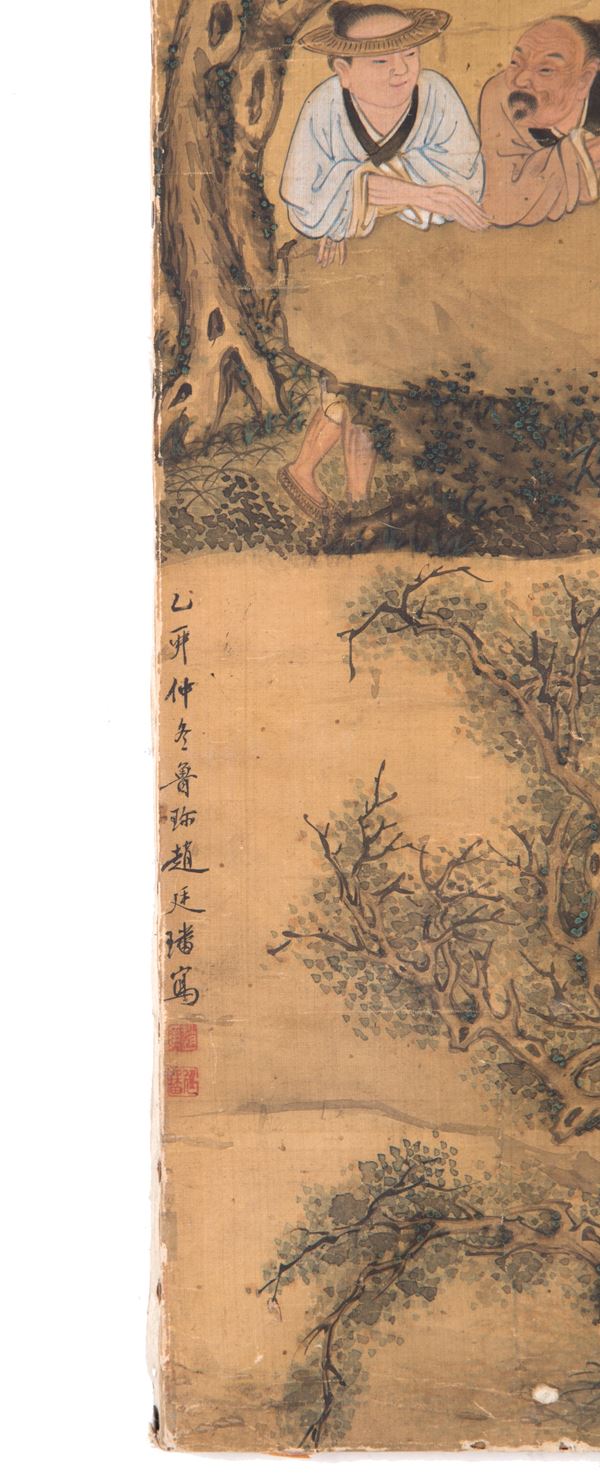 乙亥仲冬魯珍趙廷璠寫